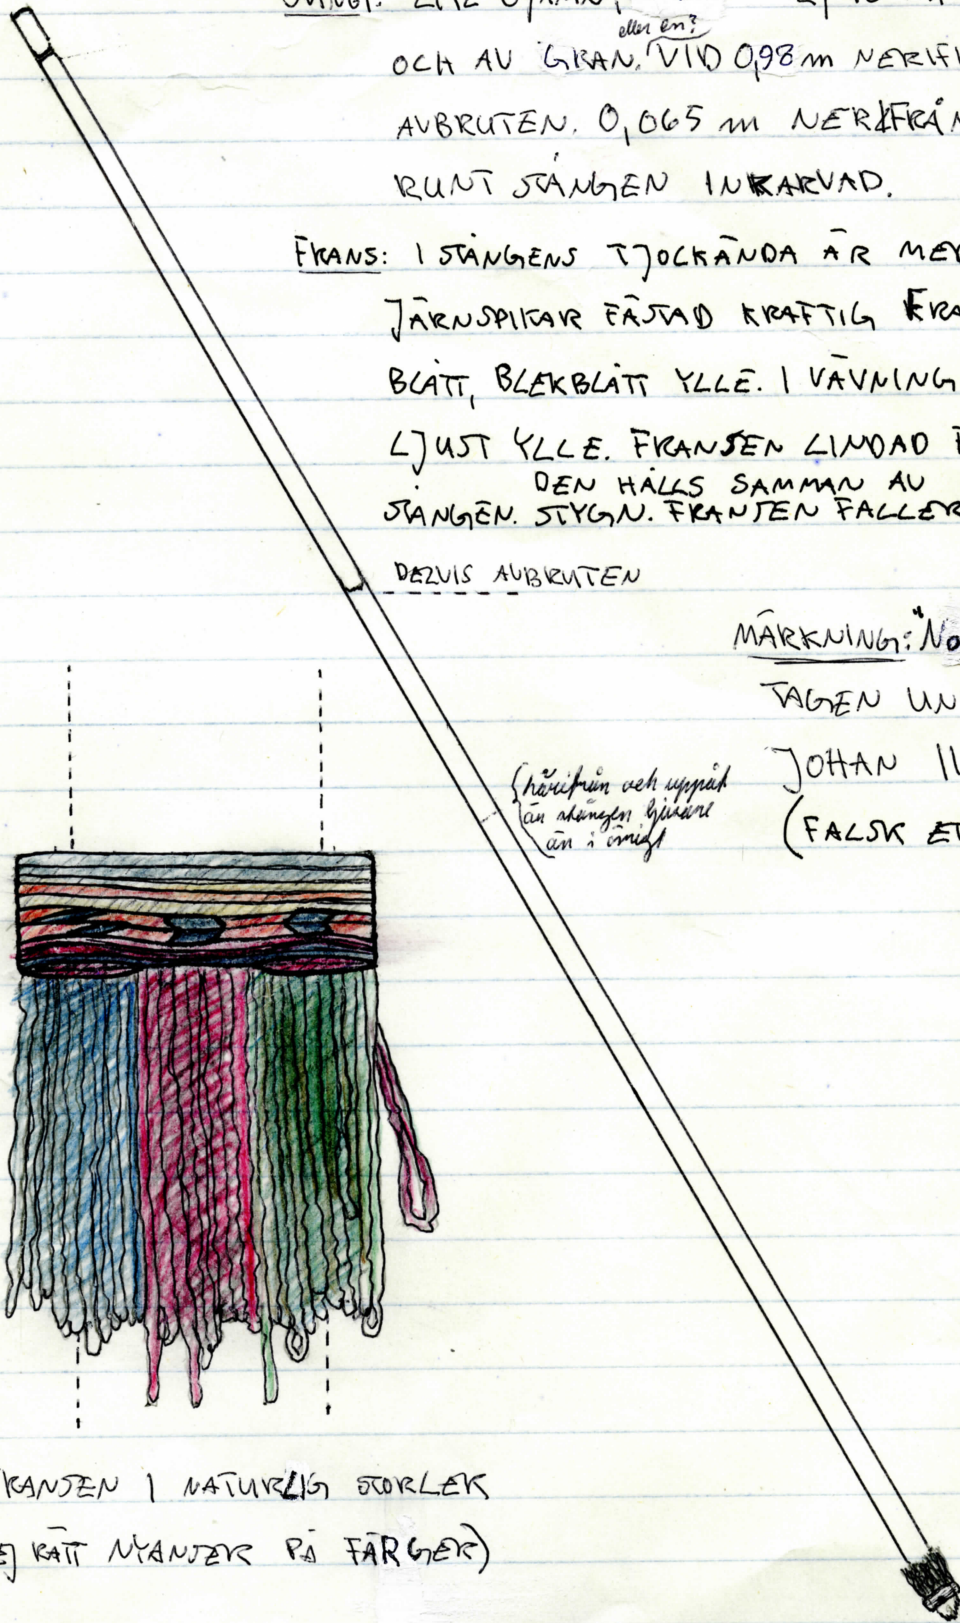 eller en?
OCH AV GRAN. VID 0,98 m NERIF
AVBRUTEN. 0,065 m NERIFRÅN
RUNT STÅNGEN INKARVAD.
FRANS: I STÅNGENS TJOCKÄNDA ÄR ME
JÄRNSPIKAR FÄSTAD KRAFTIG FRA
BLÅTT, BLEKBLÅTT YLLE. I VÄVNING
LJUST YLLE. FRANSEN LINDAD
DEN HÅLLS SAMMAN AV
STÅNGEN. STYGN. FRANSEN FALLER
DELVIS AVBRUTEN
MÄRKNING: "No
TAGEN UN
JOHAN II
(FALSK ET
härifrån och uppåt
är stången ljusare
än i övrigt
RANSEN I NATURLIG STORLEK
EJ RÄTT NYANSER PÅ FÄRGER)